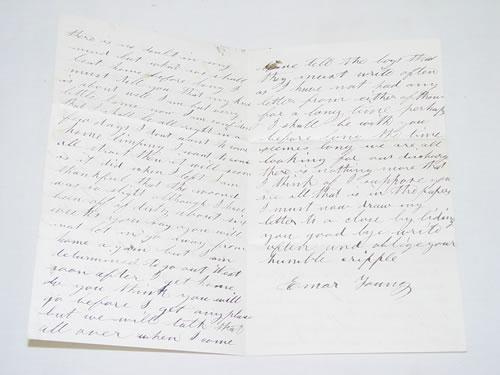 there is no doubt in my
mind but what we shall
beat home before long I
must tell you that my knee
is about well I am but any
better now I am confident
that I shall be all right in a
few days I dont want to come
home limping I want to come
all strait then it will seem
as it did when I left I am
thankful that the wound
was so slight although I have
been off of duty about six
weeks you say you will
not let me go away from
home again but I am
determined to go out West
soon after I get home
do you think you will
go before I get any place
but we will talk that
all over when I come
home tell the boys that
they must write often
as I have not had any
letter from either of them
for a long time perhaps
I shall be with you
before long the time
seemes long we are all
looking for our discharge
there is nothing more that
I think of suppose you
see all that is in the papers
I must now draw my
letter to a close by biding
you good bye write
often and oblige your
humble cripple
Emar Young